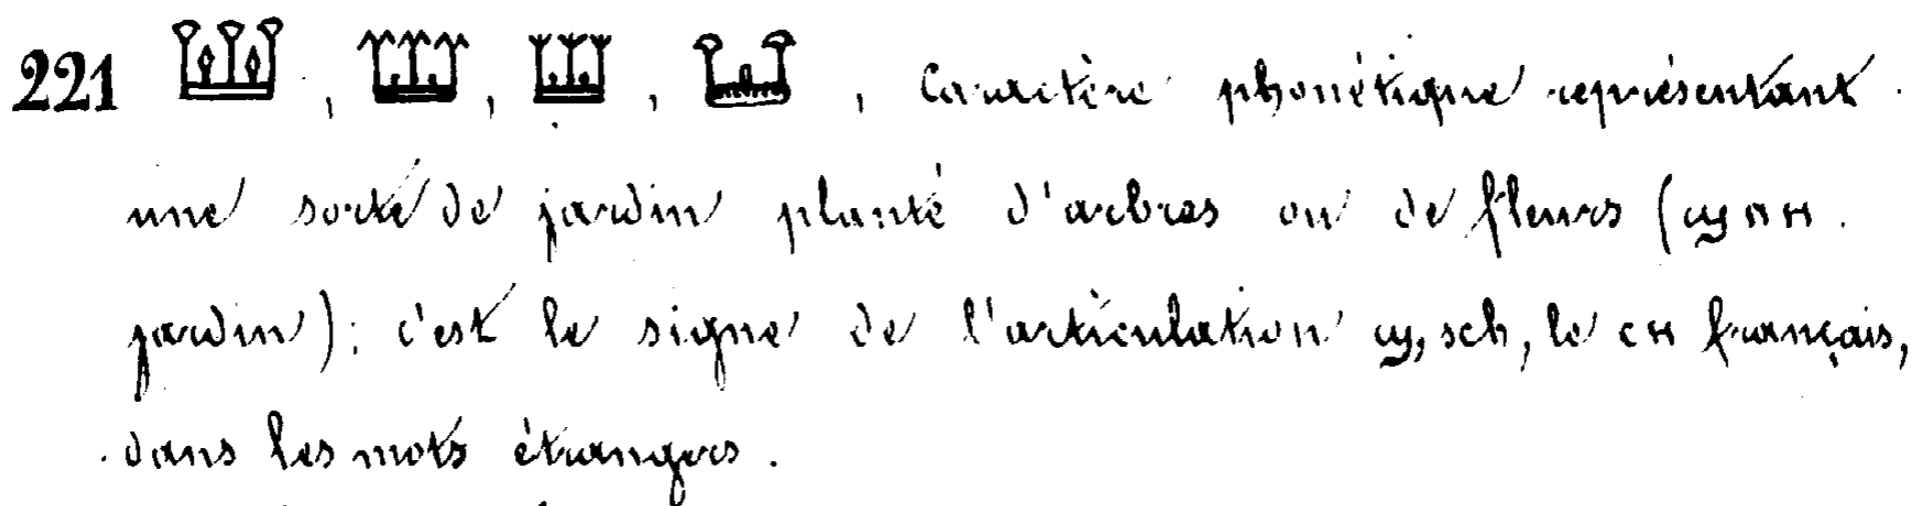 221 𓆷, 𓆷, 𓆷, 𓆷, Caractère phonétique représentant
une sorte de jardin planté d'arbres ou de fleurs (ϣⲛⲏ.
jardin); c'est le signe de l'articulation ϣ, sch, le CH français,
dans les mots étrangers.